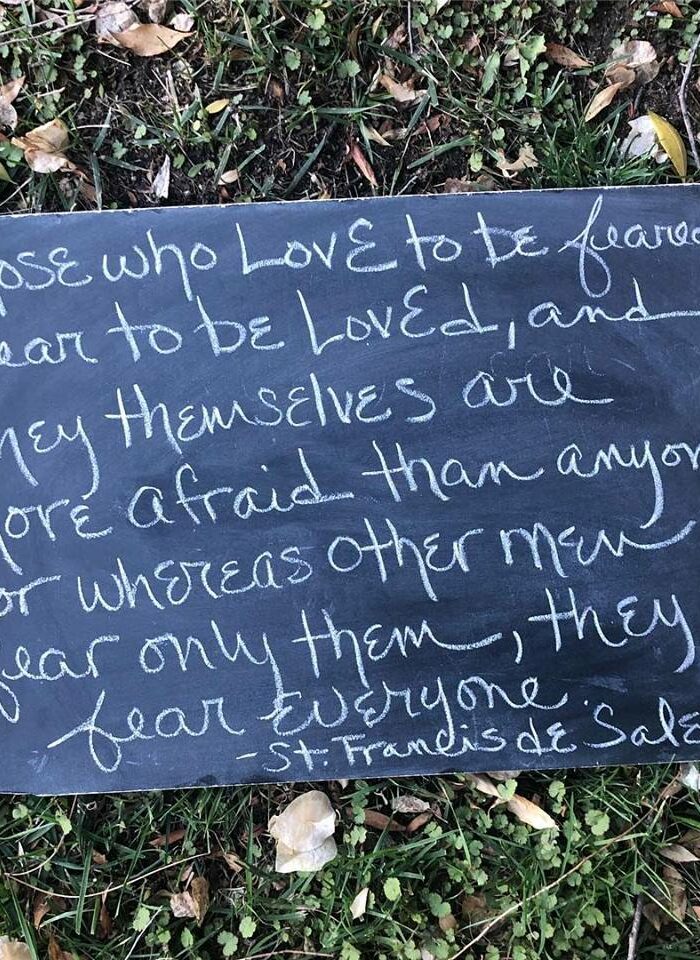 ose who Love to be feare
ear to be Loved, and
hey themselves are
ore afraid than anyon
or whereas other men
fear only them, they
fear everyone.
-St. Francis de Sale